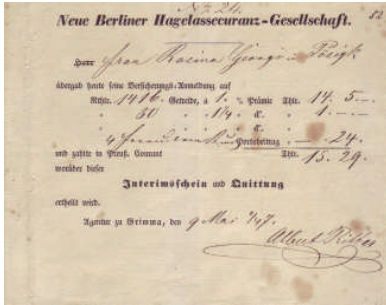 No. 24.
Neue Berliner Hagelassecuranz-Gesellschaft.
Herr Frau Rosina in
übergab heute seine Versicherungs-Anmeldung auf
Rthlr. 1416. Getreide, à 1. % Prämie Thlr. 14. 5 —
" 80 " 1 1/4 " &. " 1. — —
" " " &. "
4 Portobeitrag " — 24.
und zahlte in Preuß. Courant Thlr. 15. 29.
worüber dieser
Interimsschein und Quittung
ertheilt wird.
Agentur zu Grimma, den 9 Mai 1847.
Albert